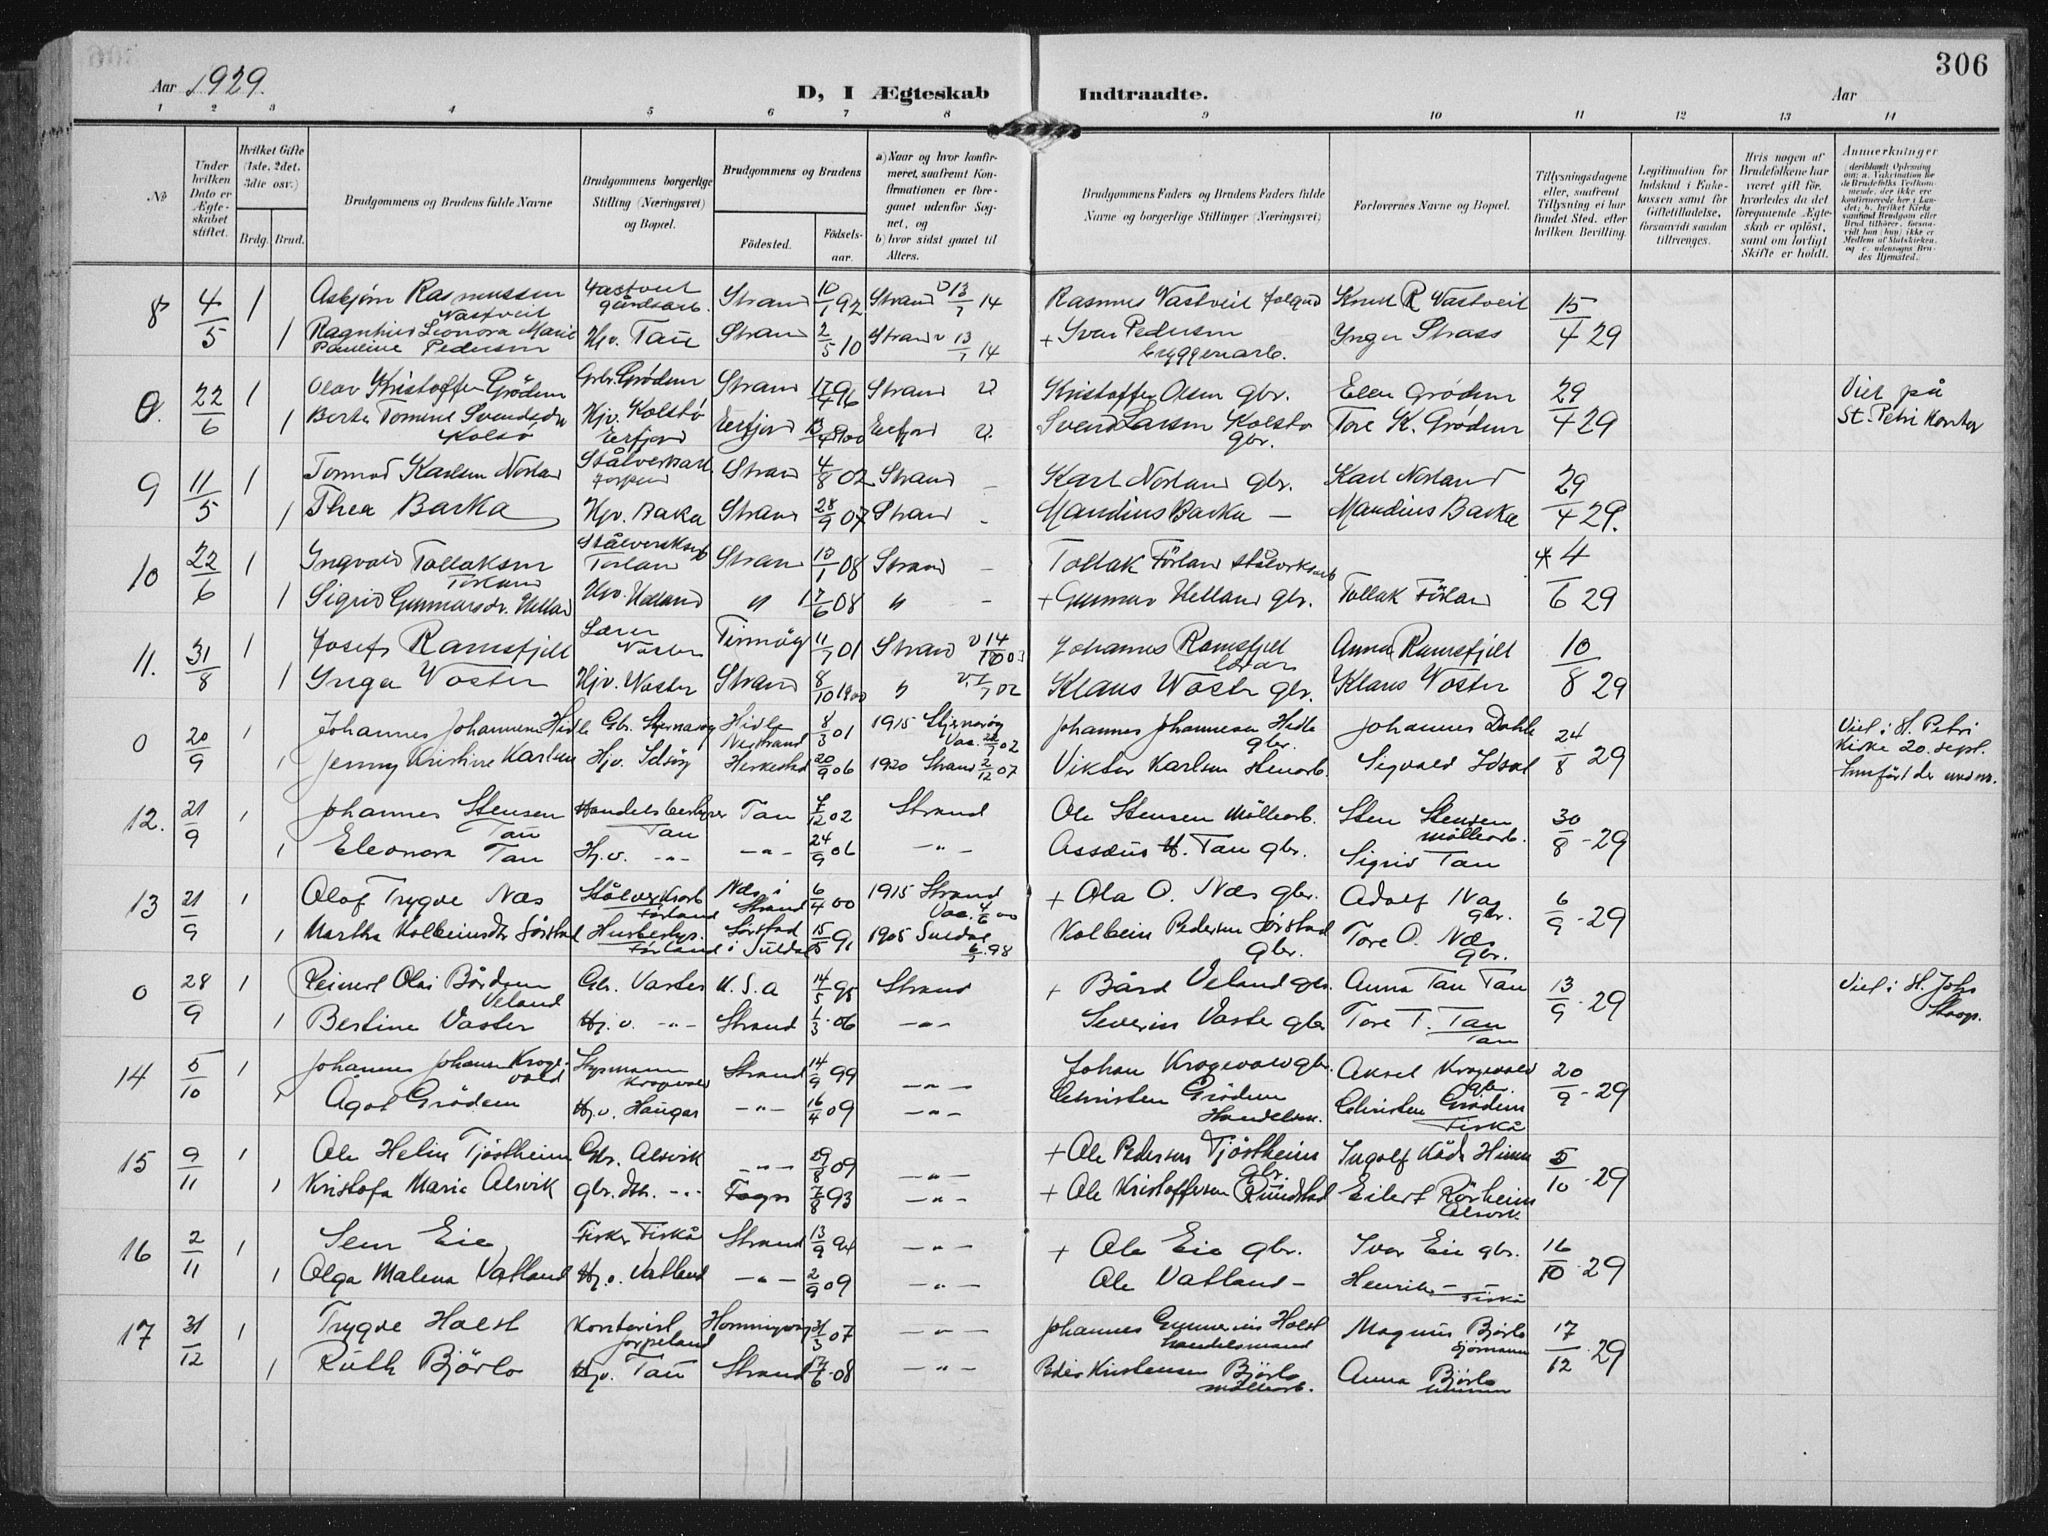 306
Aar 1929.
D, I Ægteskab Indtraadte.
Aar
1 2 3 4 5 6 7 8 9 10 11 12 13 14
No
Under hvilken Dato er Ægteskabet stiftet.
Hvilket Gifte (1ste, 2det, 3die osv.)
Brdg. Brud.
Brudgommens og Brudens fulde Navne
Brudgommens borgerlige Stilling (Næringsvei) og Bopæl.
Brudgommens og Brudens
Födested. Födselsaar.
a) Naar og hvor konfirmeret, saafremt Konfirmationen er foregaaet udenfor Sognet, og
b) hvor sidst gaaet til Alters.
Brudgommens Faders og Brudens Faders fulde Navne og borgerlige Stillinger (Næringsvei)
Forlovernes Navne og Bopæl.
Tillysningsdagene eller, saafremt Tillysning ei har fundet Sted, efter hvilken Bevilling.
Legitimation for Indskud i Enkekassen samt for Giftetilladelse, forsaavidt saadan tiltrænges.
Hvis nogen af Brudefolkene har været gift för, hvorledes da det foregaaende Ægteskab er oplöst, samt om lovligt Skifte er holdt.
Anmerkninger
8 4/5 1 Asbjørn Rasmussen Vastveit gårdsarb. Strand 10/1 92 Strand v 13/7 14 Rasmus Vastveit Knud R Vastveit 15/4 29
Nastveit
1 Leonora Marie Hjv. Tau Strand 2/5 10 Strand v 13/1 14 + Ivar Pedersen Inga Strass
Pauline Pedersen byggenarb.
0. 22/6 1 Olav Kristoffer Grödem Gbr. Grödem Strand 17/4 96 Strand v Kristoffer Olsen gbr. Ellen Grödem 29/4 29 Viet på
1 Berte Tomine Svendsdtr Hjv. Kolstö Eerfjord 13/4 1900 Eerfjord v. Svend Larsen Kolstö Tore K. Grödem St. Petri
Kolsö Eerfjord gbr.
9 11/5 1 Tormod Karlsen Norland Stålverksarb Strand 4/8 02 Strand – Karl Norland gbr. Karl Norland 29/4 29.
1 Thea Barka Hjv. Barka Strand 28/9 07 Strand – Maudius Barka – Maudius Barka
10 22/6 1 Ingvald Tollaksen Stålverksarb Strand 13/1 08 Strand – Tollak Förland stålverksarb 4/6 29
Förland
1 Sigrid Gunnarsdr. Helland Hjv. Helland " 17/6 08 " – + Gunnar Helland gbr. Tollak Förland
11. 31/8 1 Josef Ramsfjell Lærer Finnöy 11/7 01 Strand v Johannes Ramsfjell Anna Ramsfjell 10/8 29
1 Inga Voster Hjv. Voster Strand 8/10 1900 " Klaus Voster gbr. Klaus Voster
0 20/9 1 Johannes Johannesen Hidle Gbr. Stjernarøy Hidle Nerstrand 8/3 01 1915 Stjernarøy Vac. 02 Johannes Johannesen Hidle gbr. Johannes Dahle 24/8 29 Viet i St. Petri
1 Jenny Kristine Karlsen Hjv. Idsöy Herkestad 20/9 06 1920 Strand 2/12 07 Viktor Karlsen stenarb. Sigvald Idsal Kirke 20. sept.
Innfört der under.
12. 21/9 1 Johannes Stensen Handelsbestyrer Tau 7/12 02 Strand Ole Stensen Möllearb. Sten Stensen 30/8 - 29
Tau Tau möllearb.
1 Eleonora Tau Hj.v. -"- -"- 24/9 06 -"- Assæus H. Tau gbr. Sigrid Tau
13 21/9 1 Olaf Trygve Næs Stålverksarb Næs i Strand 6/4 00 1915 Strand + Ola O. Næs gbr. Adolf Næs 6/9 - 29
Förland Vac. 4/6 00 gbr.
1 Martha Kolbeinsdtr Sörstad Husbestyr. Sörstad 15/5 91 1905 Suldal Kolbein Pedersen Sörstad Tore O. Næs
Förland i Suldal 98 gbr. gbr.
0 28/9 1 Reinert Olai Bårdsen Gbr. Vaster U.S.a 14/5 95 Strand + Bård Veland gbr. Anna Tau Tau 13/9 - 29 Viet i St. Johs
Veland
1 Bertine Vaster Hj.v. -"- Strand 1/3 06 -"- Severin Vaster gbr Tore T. Tau
Tau
14 5/10 1 Johannes Johansen Krogevold Styrmann Strand 14/9 99 -"- Johan Krogevold gbr. Aksel Krogevold 20/9 - 29
Krogevold gbr.
1 Agot Grödem Hj.v. Haugar -"- 16/4 09 -"- Christen Grödem Christen Grödem
Handelsm. Fiskå
15 9/11 1 Ole Helin Tjöstheim Gbr. Alsvik -"- 29/8 09 -"- + Ole Pedersen Tjöstheim Ingolf 5/10 - 29
gbr.
1 Kristofa Marie Alsvik gbr.dtr. -"- Fogn 7/8 93 -"- + Ole Kristoffersen Rundstad Eilert Rörheim
Alsvik
16 2/11 1 Sem Eie Fisker Fiskå Strand 13/9 94 -"- + Ole Eie gbr. Ivar Eie gbr. 16/10 - 29
1 Olga Malena Vatland Hj.v. Vatland -"- 2/9 09 -"- Ole Vatland – Henrik –
Fiskå
17 31/12 1 Trygve Holst Kontorist Honningsvåg 31/3 07 -"- Johannes Gunnerius Holst Magnus Björlo 17/12 - 29
Jorpeland handelsmand Sjömann
1 Ruth Björlo Hj.v. Tau Strand 17/6 08 -"- Peder Kristensen Björlo Anna Björlo
möllearb.